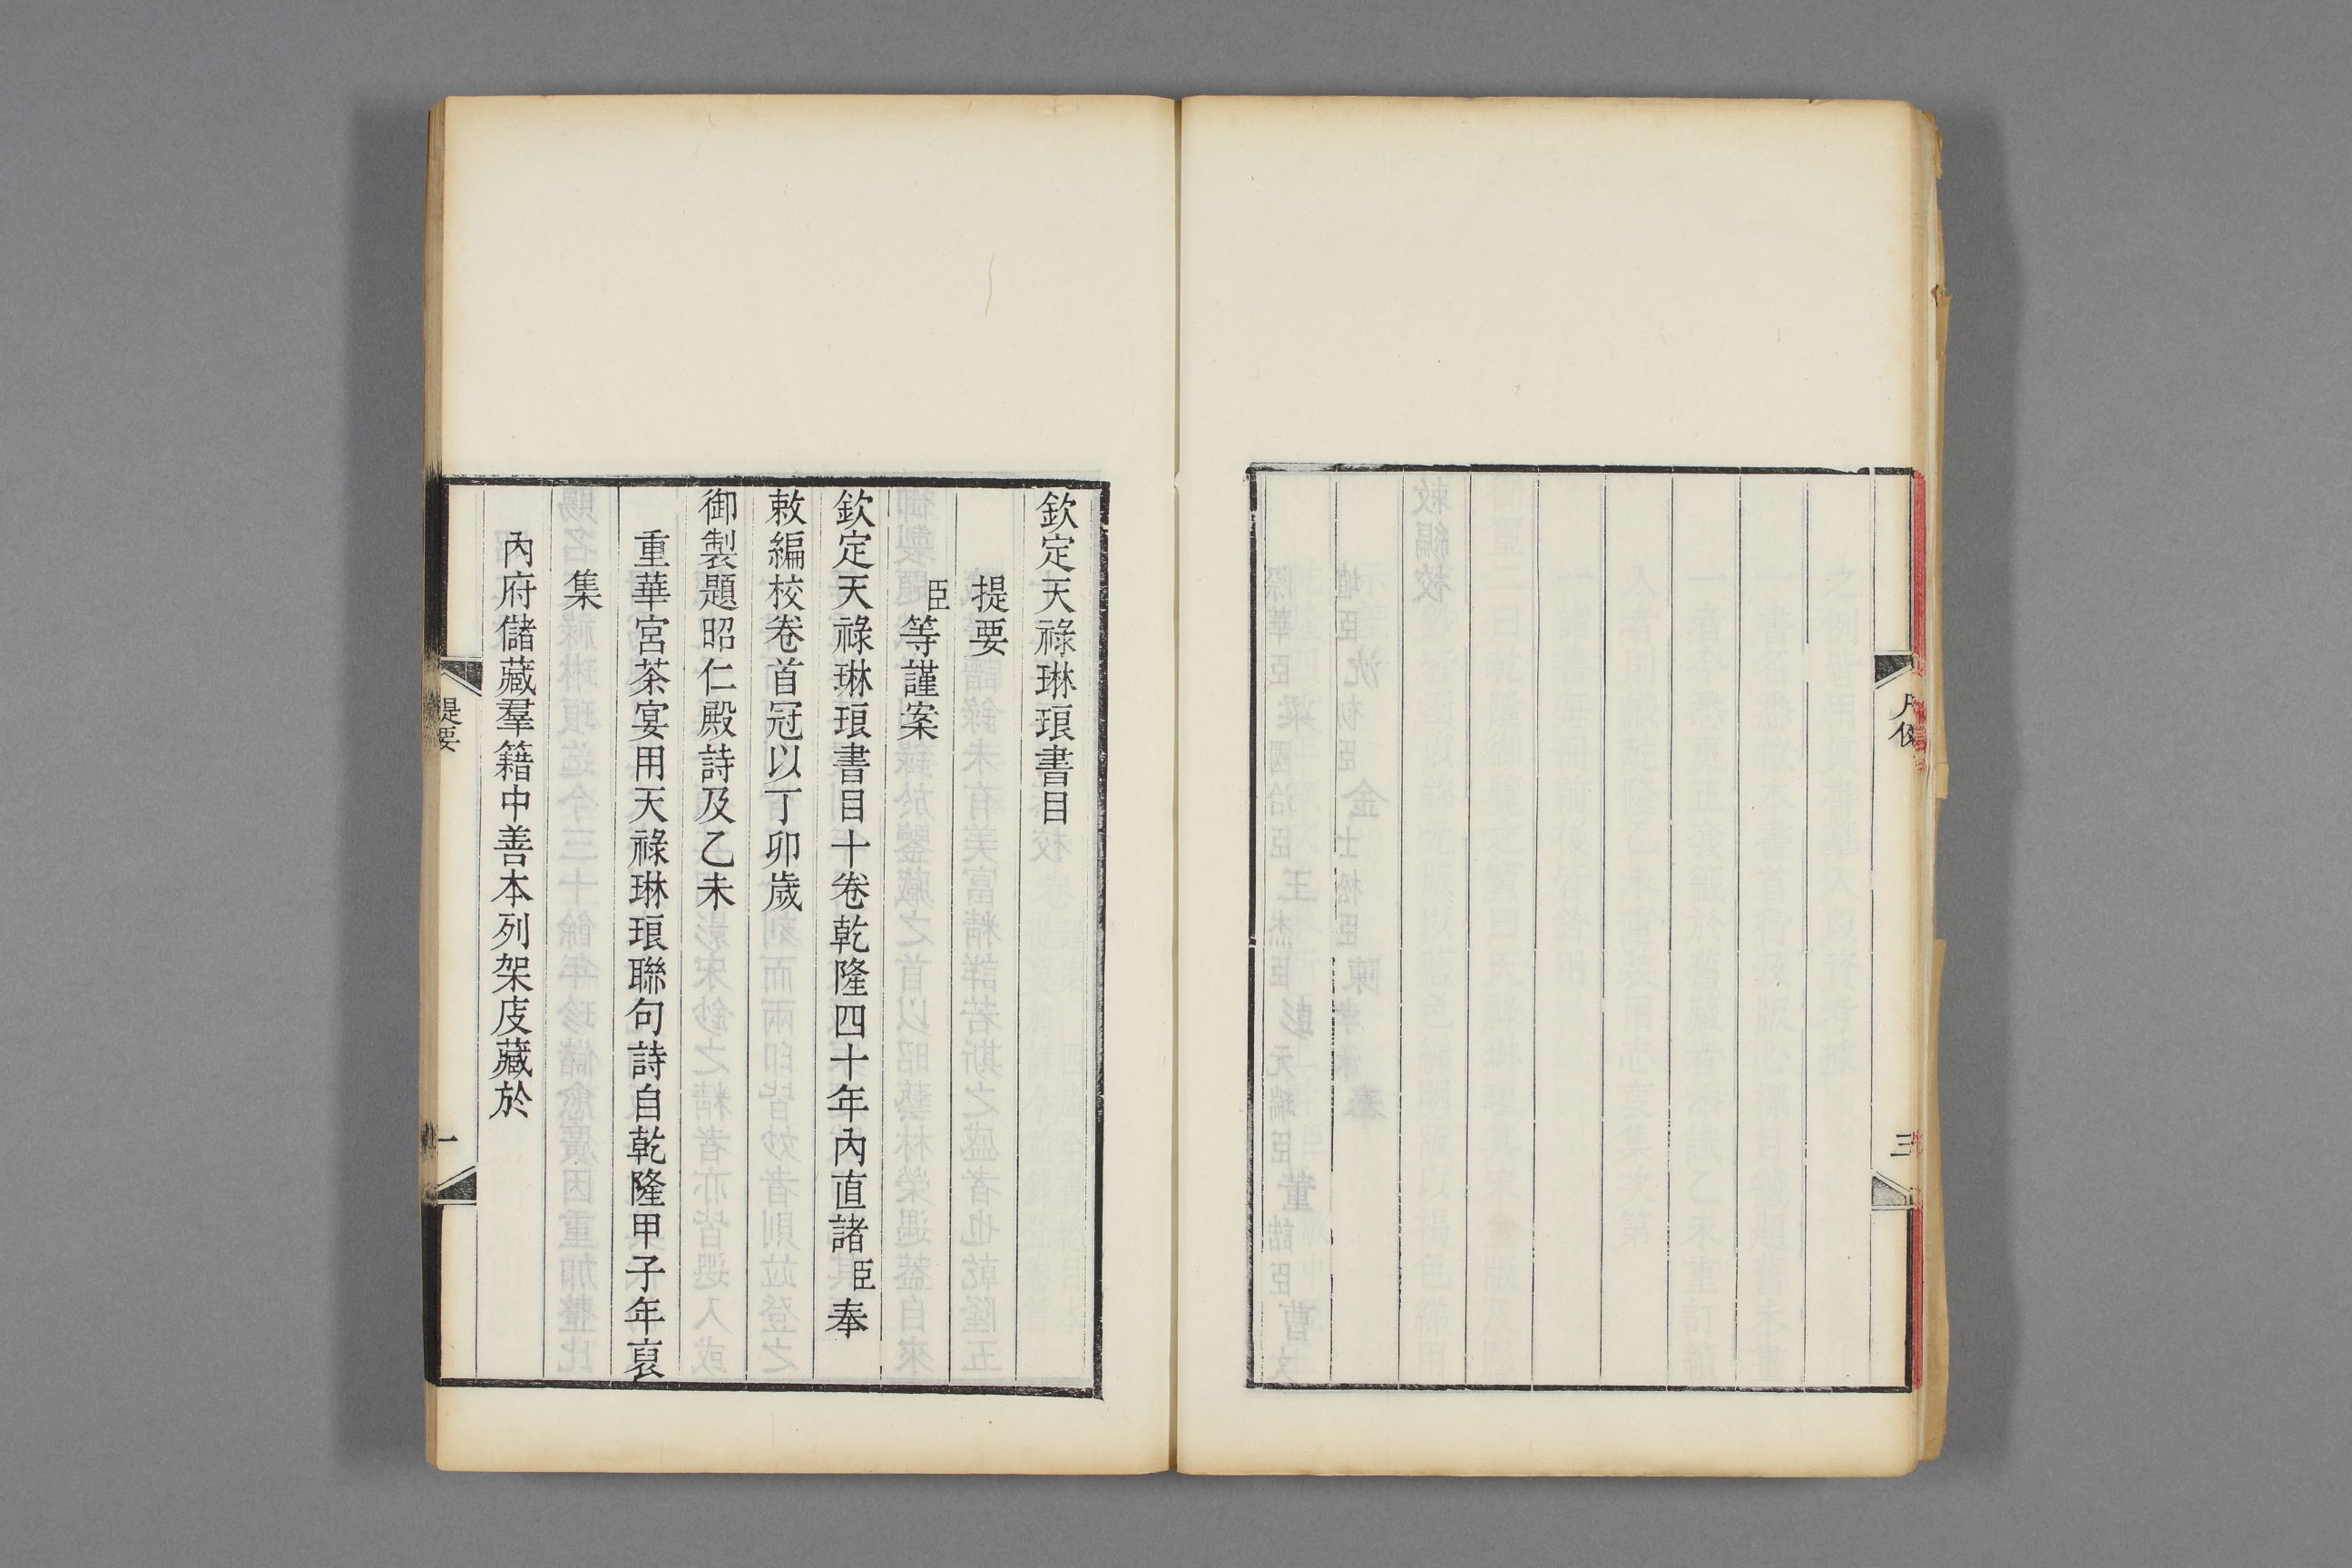 凡例
三
欽定天祿琳琅書目
提要
臣等謹案
欽定天祿琳琅書目十卷乾隆四十年內直諸臣奉
敕編校卷首冠以丁卯歲
御製題昭仁殿詩及乙未
重華宮茶宴用天祿琳琅聯句詩自乾隆甲子年裒
集
內府儲藏羣籍中善本列架庋藏於
提要
一